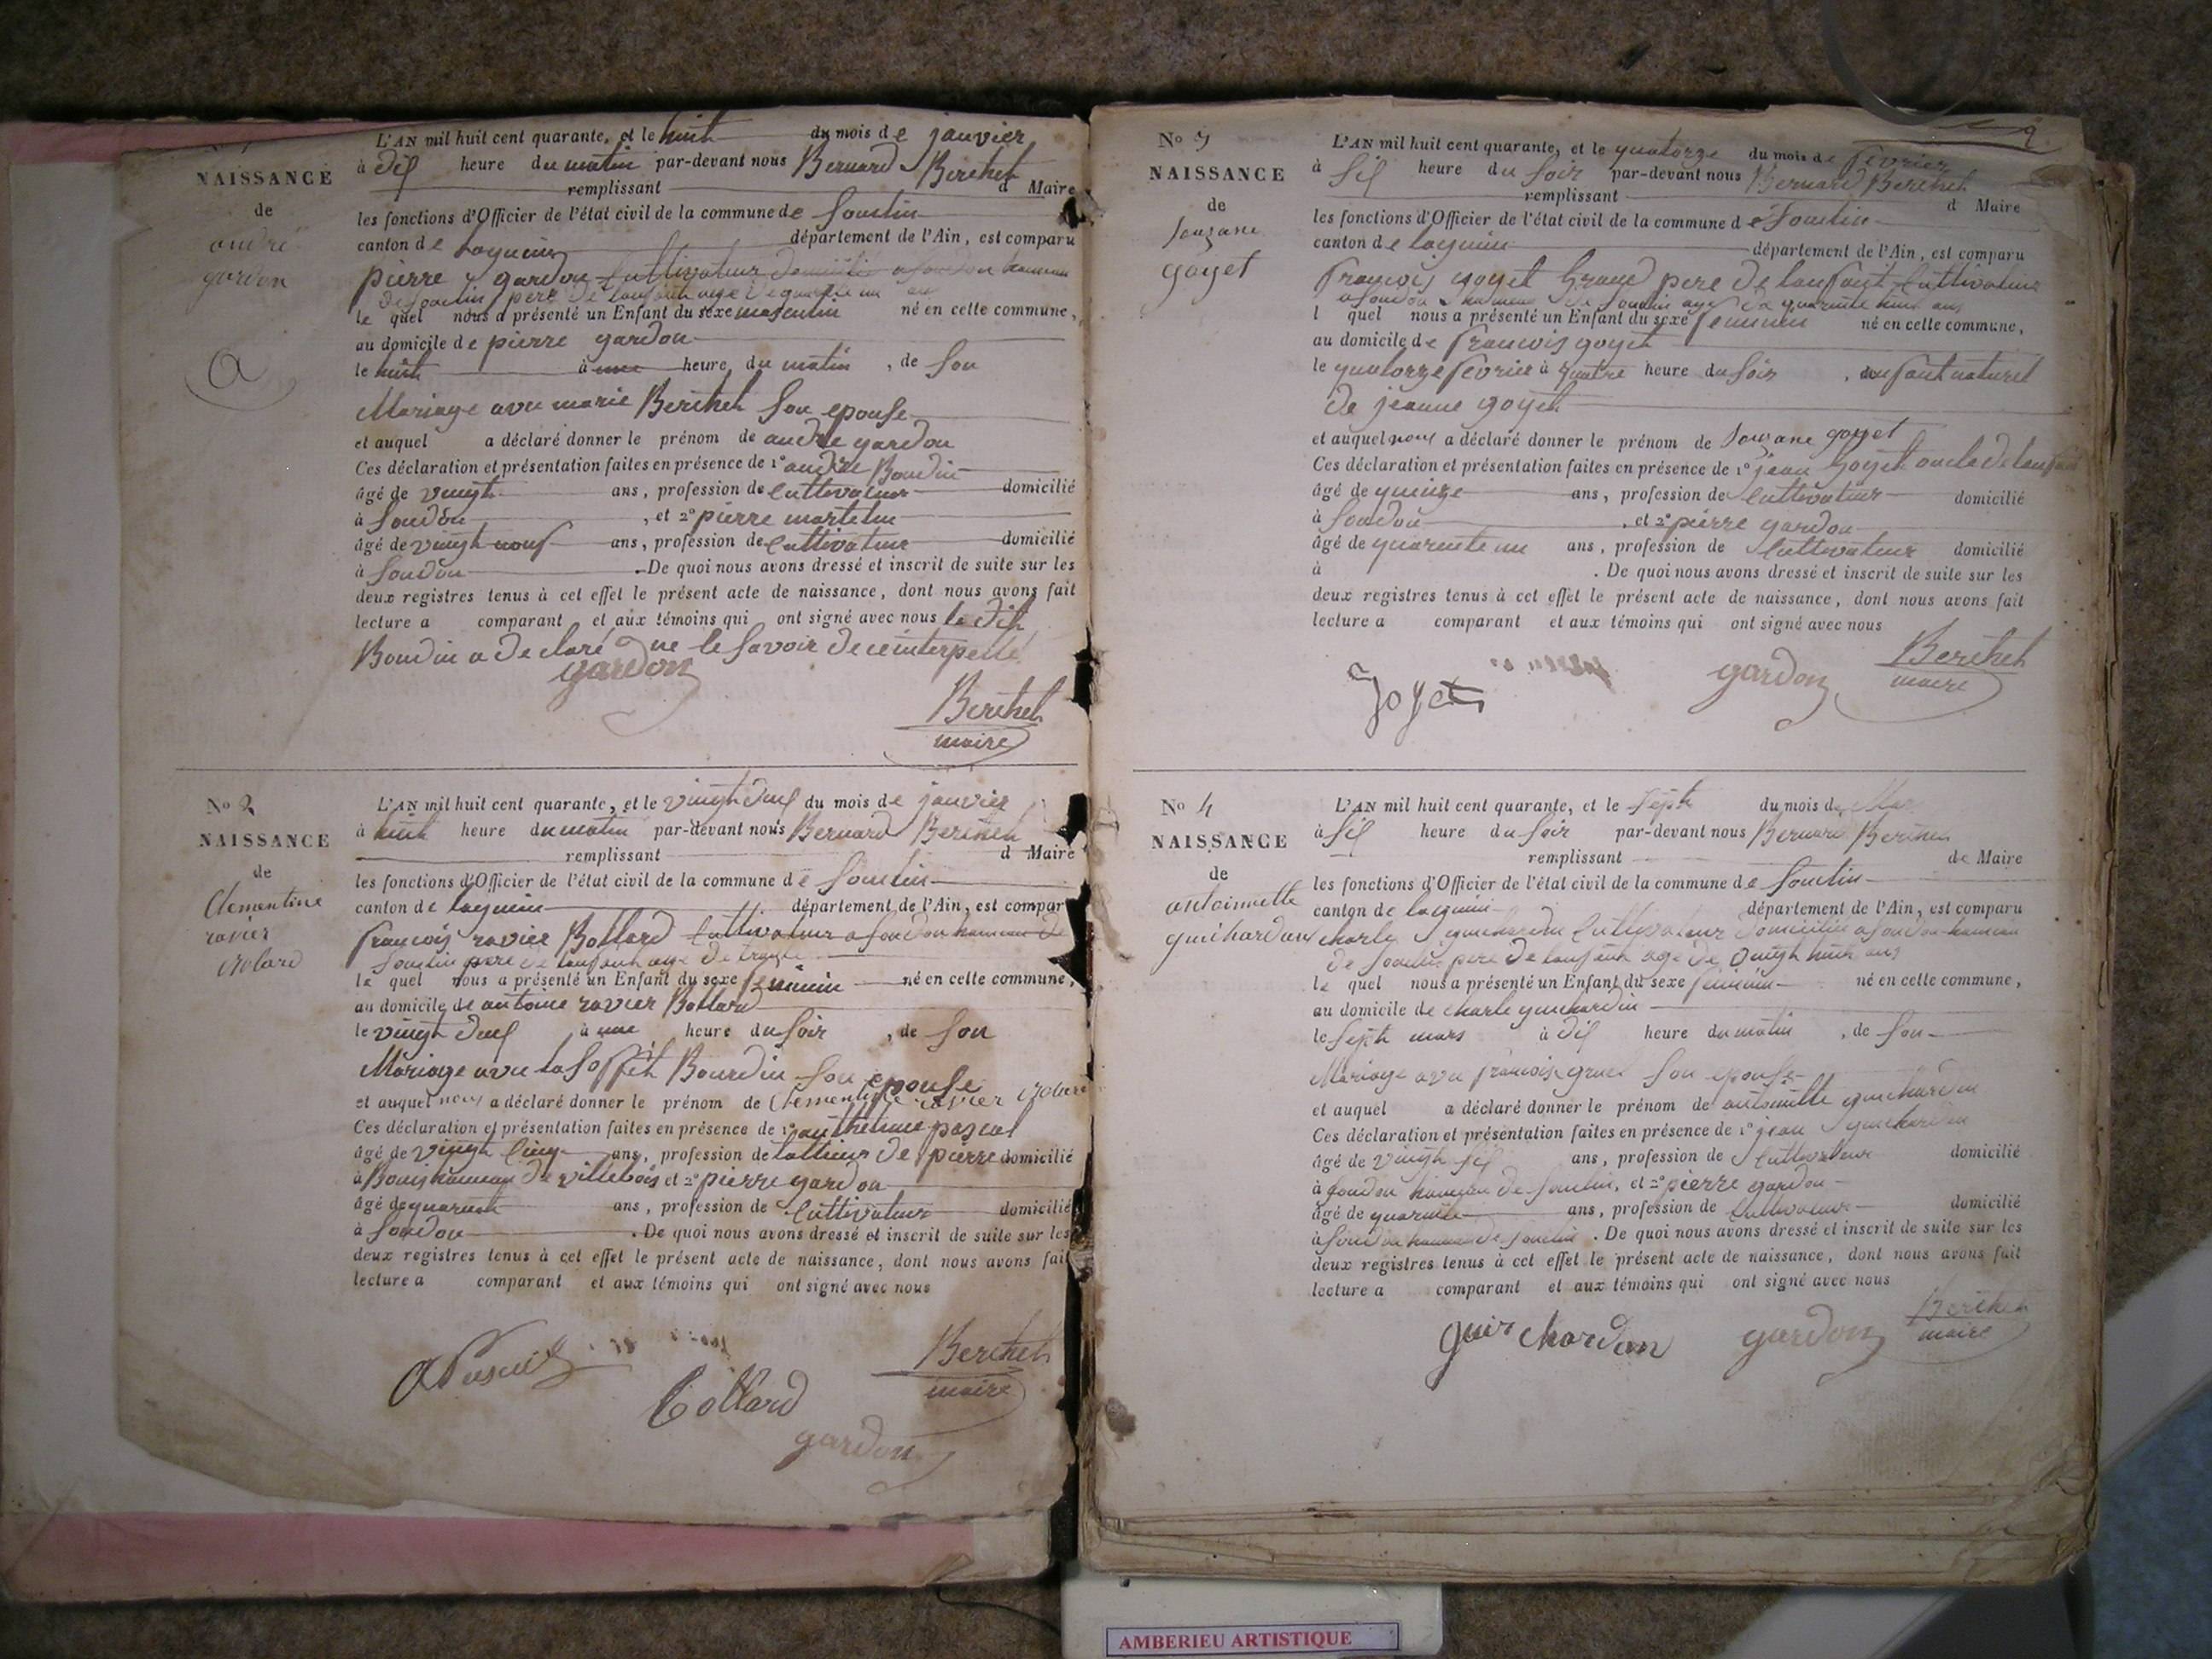 NAISSANCE
de
andré
gardon
L'AN mil huit cent quarante, et le huit du mois de janvier
à dix heure du matin par-devant nous Bernard Berthet
remplissant d Maire
les fonctions d'Officier de l'état civil de la commune de Souclin
canton de Lagnieu département de l'Ain, est comparu
pierre gardon Cultivateur domicilié a Soudon hameau
de Souclin pere de lenfant age de quarante un an
le quel nous a présenté un Enfant du sexe masculin né en cette commune,
au domicile de pierre gardon
le huit à une heure du matin, de Son
Mariage avec marie Berthet Son epouse
et auquel a déclaré donner le prénom de andre gardon
Ces déclaration et présentation faites en présence de 1° andre Boudin
âgé de vingt ans, profession de Cultivateur domicilié
à Soudon, et 2° pierre martelin
âgé de vingt nouf ans, profession de Cultivateur domicilié
à Soudon. De quoi nous avons dressé et inscrit de suite sur les
deux registres tenus à cet effet le présent acte de naissance, dont nous avons fait
lecture a comparant et aux témoins qui ont signé avec nous le dit
Boudin a declaré ne le Savoir de ce interpellé
gardon
Berthet
maire
No 2
NAISSANCE
de
Clementine
ravier
L'AN mil huit cent quarante, et le vingt deux du mois de janvier
à huit heure du matin par-devant nous Bernard Berthet
remplissant d Maire
les fonctions d'Officier de l'état civil de la commune de Souclin
canton de lagnieu département de l'Ain, est compar
françois ravier Bollard Cultivateur a Soudon hameau de
Souclin pere de lenfant age de trente
le quel nous a présenté un Enfant du sexe feminin né en cette commune,
au domicile de antoine ravier Bollard
le vingt deux à une heure du Soir, de Son
Mariage avec Bourdin Son epouse
et auquel nous a déclaré donner le prénom de Clementine ravier
Ces déclaration et présentation faites en présence de 1° anthelme pascal
âgé de vingt Cinq ans, profession de tailleur de pierre domicilié
à Bouis hameau de villebois et 2° pierre gardon
âgé de quarante ans, profession de Cultivateur domicilié
à Soudon. De quoi nous avons dressé et inscrit de suite sur les
deux registres tenus à cet effet le présent acte de naissance, dont nous avons fait
lecture a comparant et aux témoins qui ont signé avec nous
Berthet
maire
APascal
Bollard
gardon
2
No 3
NAISSANCE
de
Souzane
goyet
L'AN mil huit cent quarante, et le quatorze du mois de fevrier
à Six heure du Soir par-devant nous Bernard Berthet
remplissant d Maire
les fonctions d'Officier de l'état civil de la commune de Souclin
canton de lagnieu département de l'Ain, est comparu
françois goyet Grand pere de lenfant Cultivateur
a Soudon hameau de Souclin age de quarante huit ans
l quel nous a présenté un Enfant du sexe feminin né en cette commune,
au domicile de francois goyet
le quatorze fevrier à quatre heure du Soir, enfant naturel
de jeanne goyet
et auquel nous a déclaré donner le prénom de Souzane goyet
Ces déclaration et présentation faites en présence de 1° jean goyet oncle de lenfant
âgé de quinze ans, profession de Cultivateur domicilié
à Soudon, et 2° pierre gardon
âgé de quarante un ans, profession de Cultivateur domicilié
à . De quoi nous avons dressé et inscrit de suite sur les
deux registres tenus à cet effet le présent acte de naissance, dont nous avons fait
lecture a comparant et aux témoins qui ont signé avec nous
Berthet
maire
goyet
gardon
No 4
NAISSANCE
de
antoinette
guichardon
L'AN mil huit cent quarante, et le Sept du mois de Mar
à Six heure du Soir par-devant nous Bernard Berthet
remplissant de Maire
les fonctions d'Officier de l'état civil de la commune de Souclin
canton de lagnieu département de l'Ain, est comparu
charle guichardon Cultivateur domicilié a Soudon hameau
de Souclin pere de lenfant age de vingt huit ans
le quel nous a présenté un Enfant du sexe feminin né en cette commune,
au domicile de charle guichardin
le Sept mars à dix heure du matin, de Son
Mariage avec françoise gruel Son epouse
et auquel a déclaré donner le prénom de antoinette guichardin
Ces déclaration et présentation faites en présence de 1° jean guichardin
âgé de vingt Six ans, profession de Cultivateur domicilié
à Soudon hameau de Souclin, et 2° pierre gardon
âgé de quarante ans, profession de Cultivateur domicilié
à Soudon hameau de Souclin. De quoi nous avons dressé et inscrit de suite sur les
deux registres tenus à cet effet le présent acte de naissance, dont nous avons fait
lecture a comparant et aux témoins qui ont signé avec nous
Berthet
maire
guichardon
gardon
AMBERIEU ARTISTIQUE